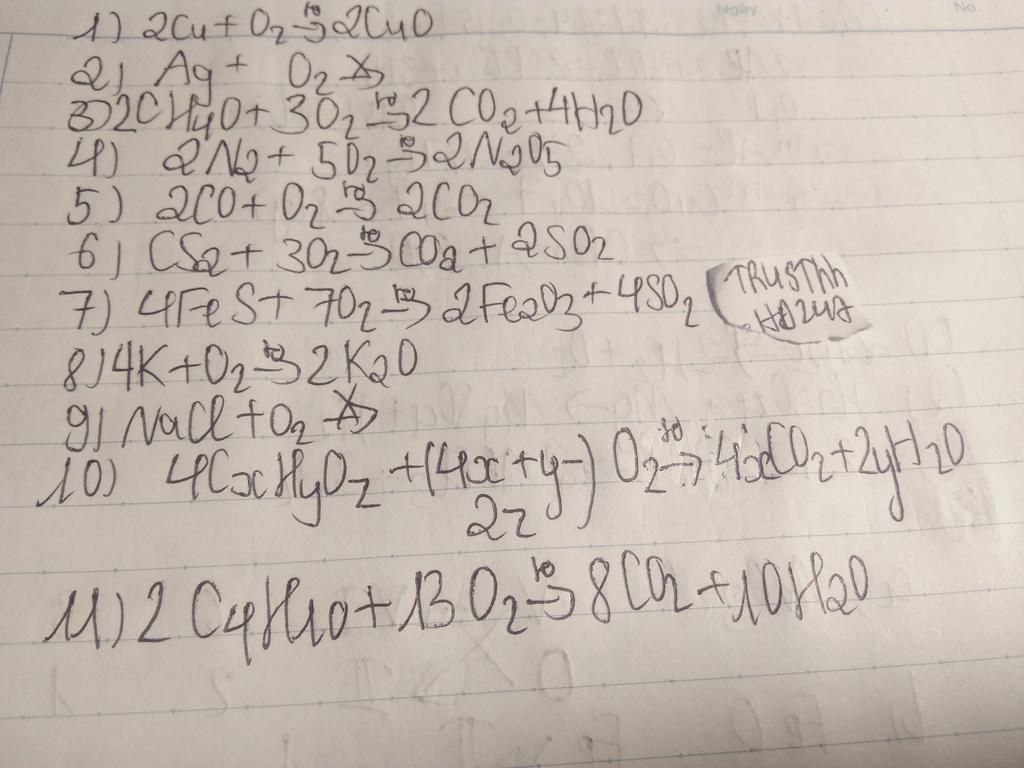 Ngày No.
1) 2Cu + O2 t°→ 2CuO
2) Ag + O2 ↛
3) 2CH4O + 3O2 t°→ 2CO2 + 4H2O
4) 2N2 + 5O2 t°→ 2N2O5
5) 2CO + O2 t°→ 2CO2
6) CS2 + 3O2 t°→ CO2 + 2SO2
7) 4FeS + 7O2 t°→ 2Fe2O3 + 4SO2
TRUSThh
HD247
8) 4K + O2 t°→ 2K2O
9) NaCl + O2 ↛
10) 4CxHyOz + (4x + y - ) O2 t°→ 4xCO2 + 2yH2O
2z
11) 2C4H10 + 13O2 t°→ 8CO2 + 10H2O